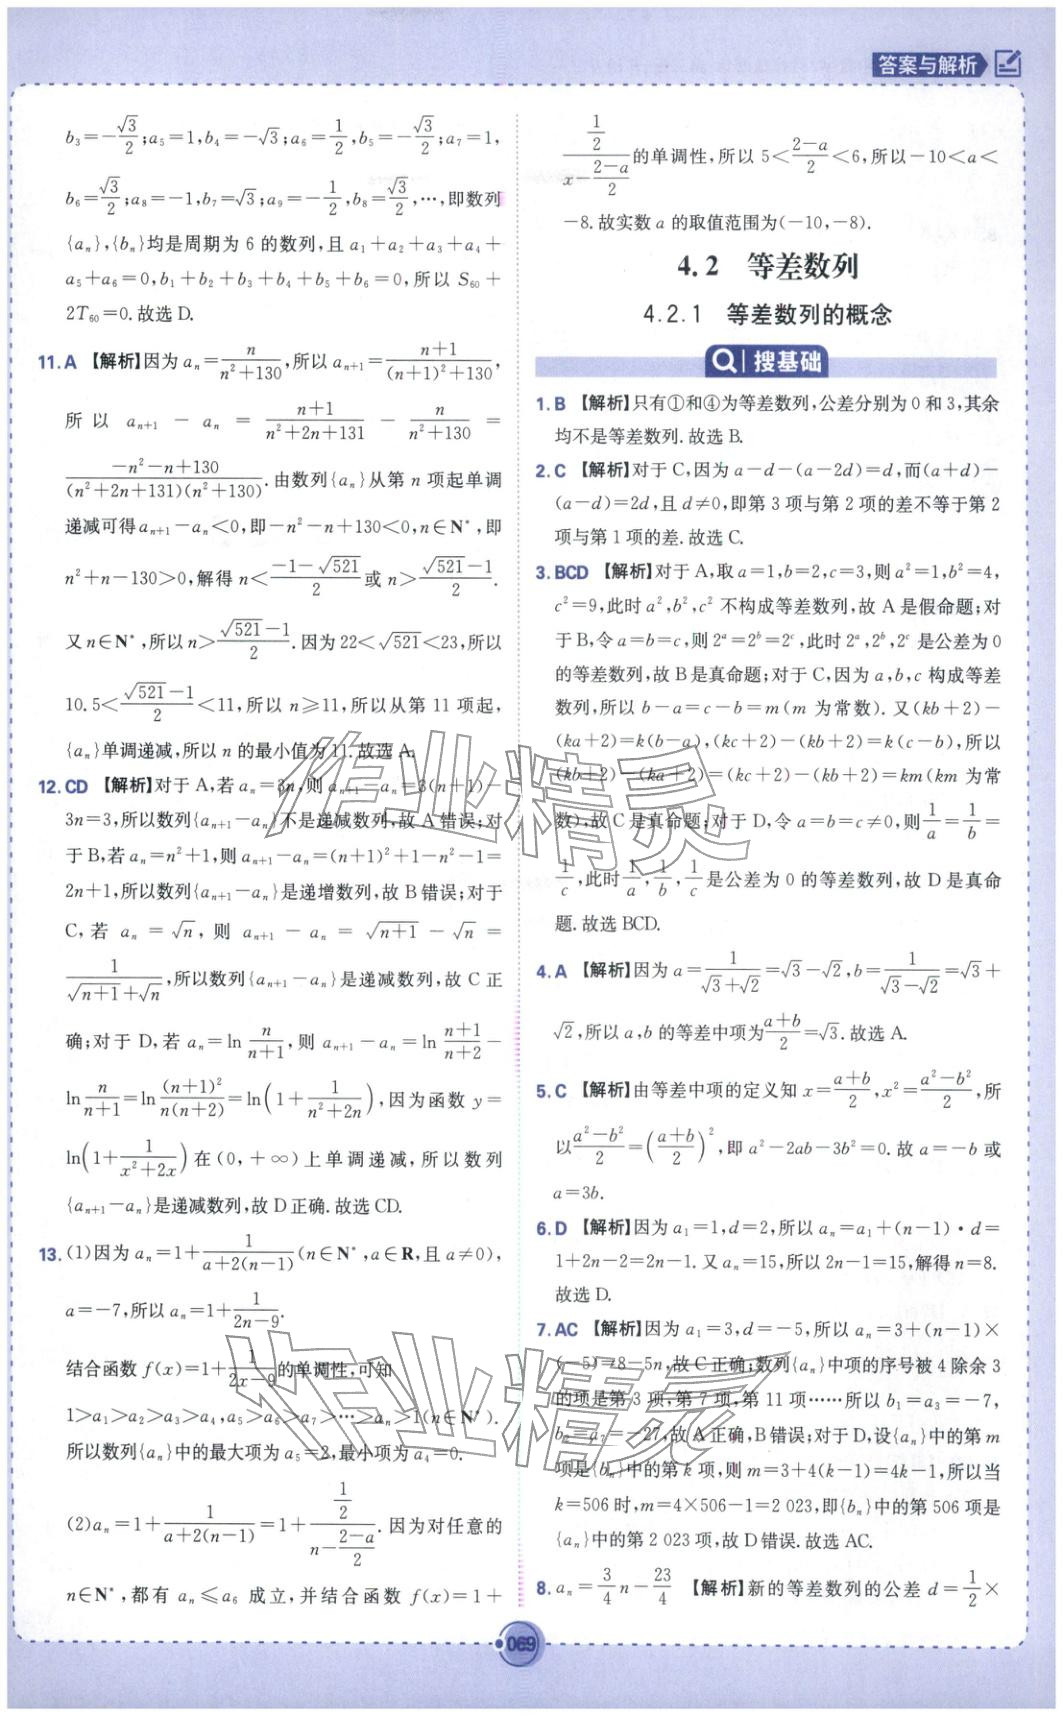 答案与解析
b₃=-√3/2;a₅=1,b₄=-√3;a₆=1/2,b₅=-√3/2;a₇=1,
b₆=√3/2;a₈=-1,b₇=√3;a₉=-1/2,b₈=√3/2,…,即数列
{aₙ},{bₙ}均是周期为 6 的数列,且 a₁+a₂+a₃+a₄+
a₅+a₆=0,b₁+b₂+b₃+b₄+b₅+b₆=0,所以 S₆₀+
2T₆₀=0.故选 D.
11.A 【解析】因为 aₙ=n/(n²+130),所以 aₙ₊₁=(n+1)/((n+1)²+130),
所以 aₙ₊₁-aₙ=(n+1)/(n²+2n+131)-n/(n²+130)=
(-n²-n+130)/((n²+2n+131)(n²+130)).由数列{aₙ}从第 n 项起单调
递减可得aₙ₊₁-aₙ<0,即-n²-n+130<0,n∈N*,即
n²+n-130>0,解得 n<(-1-√521)/2或 n>(√521-1)/2.
又 n∈N*,所以 n>(√521-1)/2.因为 22<√521<23,所以
10.5<(√521-1)/2<11,所以 n≥11,所以从第 11 项起,
{aₙ}单调递减,所以 n 的最小值为 11.故选 A.
12.CD 【解析】对于 A,若 aₙ=3n,则 aₙ₊₁-aₙ=3(n+1)-
3n=3,所以数列{aₙ₊₁-aₙ}不是递减数列,故 A 错误;对
于 B,若 aₙ=n²+1,则 aₙ₊₁-aₙ=(n+1)²+1-n²-1=
2n+1,所以数列{aₙ₊₁-aₙ}是递增数列,故 B 错误;对于
C,若 aₙ=√n,则 aₙ₊₁-aₙ=√(n+1)-√n=
1/(√(n+1)+√n),所以数列{aₙ₊₁-aₙ}是递减数列,故 C 正
确;对于 D,若 aₙ=ln n/(n+1),则 aₙ₊₁-aₙ=ln (n+1)/(n+2)-
ln n/(n+1)=ln (n+1)²/(n(n+2))=ln(1+1/(n²+2n)),因为函数 y=
ln(1+1/(x²+2x))在(0,+∞)上单调递减,所以数列
{aₙ₊₁-aₙ}是递减数列,故 D 正确.故选 CD.
13.(1)因为 aₙ=1+1/(a+2(n-1))(n∈N*,a∈R,且 a≠0),
a=-7,所以 aₙ=1+1/(2n-9).
结合函数 f(x)=1+1/(2x-9)的单调性,可知
1>a₁>a₂>a₃>a₄,a₅>a₆>a₇>…>aₙ>1(n∈N*).
所以数列{aₙ}中的最大项为 a₅=2,最小项为 a₄=0.
(2)aₙ=1+1/(a+2(n-1))=1+(1/2)/(n-(2-a)/2).因为对任意的
n∈N*,都有 aₙ≤a₆ 成立,并结合函数 f(x)=1+
(1/2)/(x-(2-a)/2)的单调性,所以 5<(2-a)/2<6,所以-10<a<
-8.故实数 a 的取值范围为(-10,-8).
4.2 等差数列
4.2.1 等差数列的概念
搜基础
1.B 【解析】只有①和④为等差数列,公差分别为 0 和 3,其余
均不是等差数列.故选 B.
2.C 【解析】对于 C,因为 a-d-(a-2d)=d,而(a+d)-
(a-d)=2d,且 d≠0,即第 3 项与第 2 项的差不等于第 2
项与第 1 项的差.故选 C.
3.BCD 【解析】对于 A,取 a=1,b=2,c=3,则 a²=1,b²=4,
c²=9,此时 a²,b²,c² 不构成等差数列,故 A 是假命题;对
于 B,令 a=b=c,则 2ᵃ=2ᵇ=2ᶜ,此时 2ᵃ,2ᵇ,2ᶜ 是公差为 0
的等差数列,故 B 是真命题;对于 C,因为 a,b,c 构成等差
数列,所以 b-a=c-b=m(m 为常数).又(kb+2)-
(ka+2)=k(b-a),(kc+2)-(kb+2)=k(c-b),所以
(kb+2)-(ka+2)=(kc+2)-(kb+2)=km(km 为常
数),故 C 是真命题;对于 D,令 a=b=c≠0,则1/a=1/b=
1/c,此时1/a,1/b,1/c是公差为 0 的等差数列,故 D 是真命
题.故选 BCD.
4.A 【解析】因为 a=1/(√3+√2)=√3-√2,b=1/(√3-√2)=√3+
√2,所以 a,b 的等差中项为(a+b)/2=√3.故选 A.
5.C 【解析】由等差中项的定义知 x=(a+b)/2,x²=(a²-b²)/2,所
以(a²-b²)/2=((a+b)/2)²,即 a²-2ab-3b²=0.故 a=-b 或
a=3b.
6.D 【解析】因为 a₁=1,d=2,所以 aₙ=a₁+(n-1)·d=
1+2n-2=2n-1.又 aₙ=15,所以 2n-1=15,解得 n=8.
故选 D.
7.AC 【解析】因为 a₁=3,d=-5,所以 aₙ=3+(n-1)×
(-5)=8-5n,故 C 正确;数列{aₙ}中项的序号被 4 除余 3
的项是第 3 项,第 7 项,第 11 项……所以 b₁=a₃=-7,
b₂=a₇=-27,故 A 正确,B 错误;对于 D,设{aₙ}中的第 m
项是{bₙ}中的第 k 项,则 m=3+4(k-1)=4k-1,所以当
k=506 时,m=4×506-1=2 023,即{bₙ}中的第 506 项是
{aₙ}中的第 2 023 项,故 D 错误.故选 AC.
8.aₙ=3/4n-23/4 【解析】新的等差数列的公差 d=1/2×
069
作业精灵
作业精灵